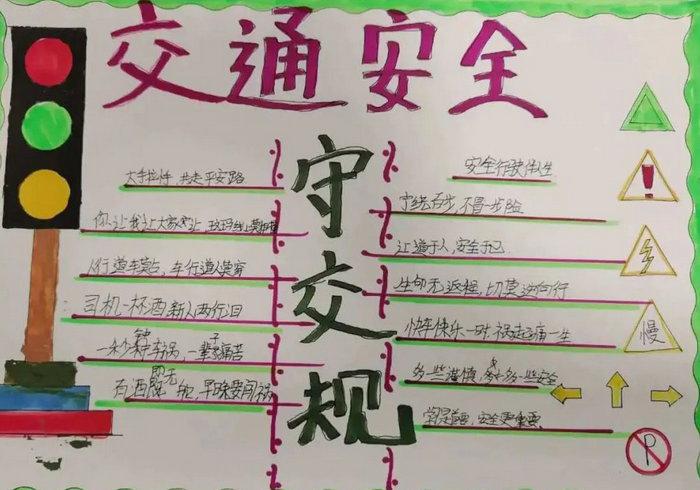 交通安全
守交规
大手拉小手 共走平安路
你让我让大家让
人行道车莫站，车行道人莫穿
司机一杯酒 亲人两行泪
一秒钟车祸，一辈子痛苦
有酒 无 早晚要闯祸
安全行驶伴一生
宁绕百步，不冒一步险
让道于人，安全于己
生命无返程，切莫逆向行
快车快乐一时，祸起痛一生
多一些谨慎，多一些安全
安全更重要
慢
P